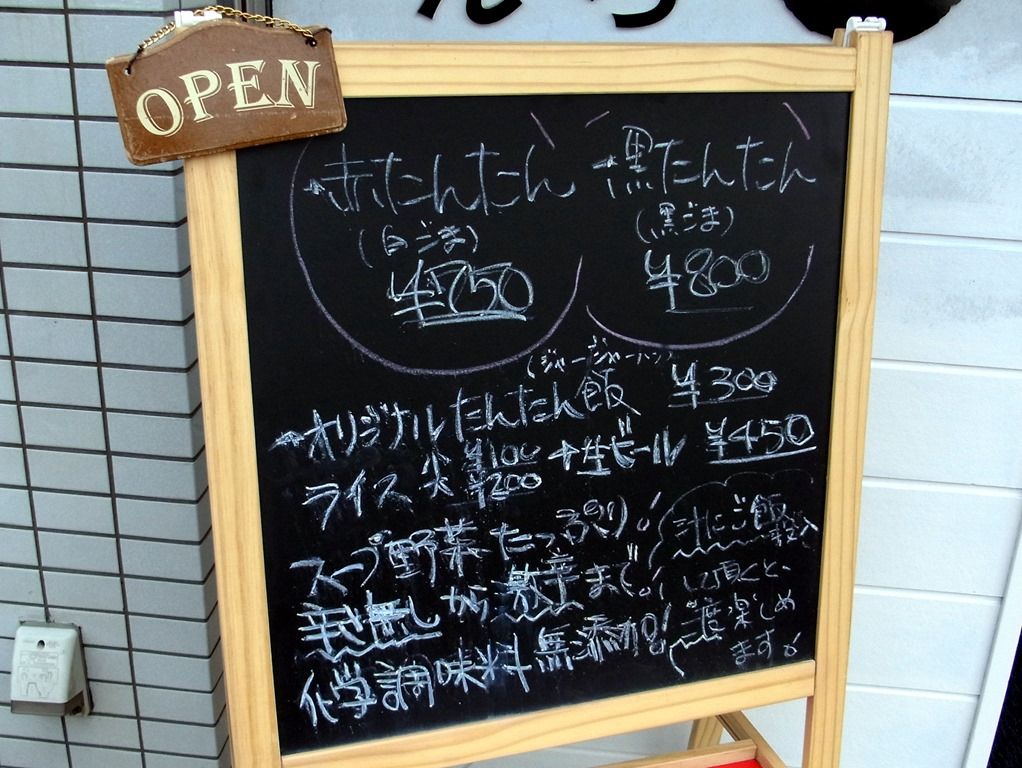 OPEN
赤たんたん
(白ごま)
¥750
黒たんたん
(黒ごま)
¥800
オリジナルたんたん飯 ¥300
ライス 小 ¥100
大 ¥200
生ビール ¥450
スープ野菜たっぷり!
辛さ無しから激辛まで!
化学調味料無添加!
汁にご飯を入
れて頂くと、
二度楽しめ
ます!